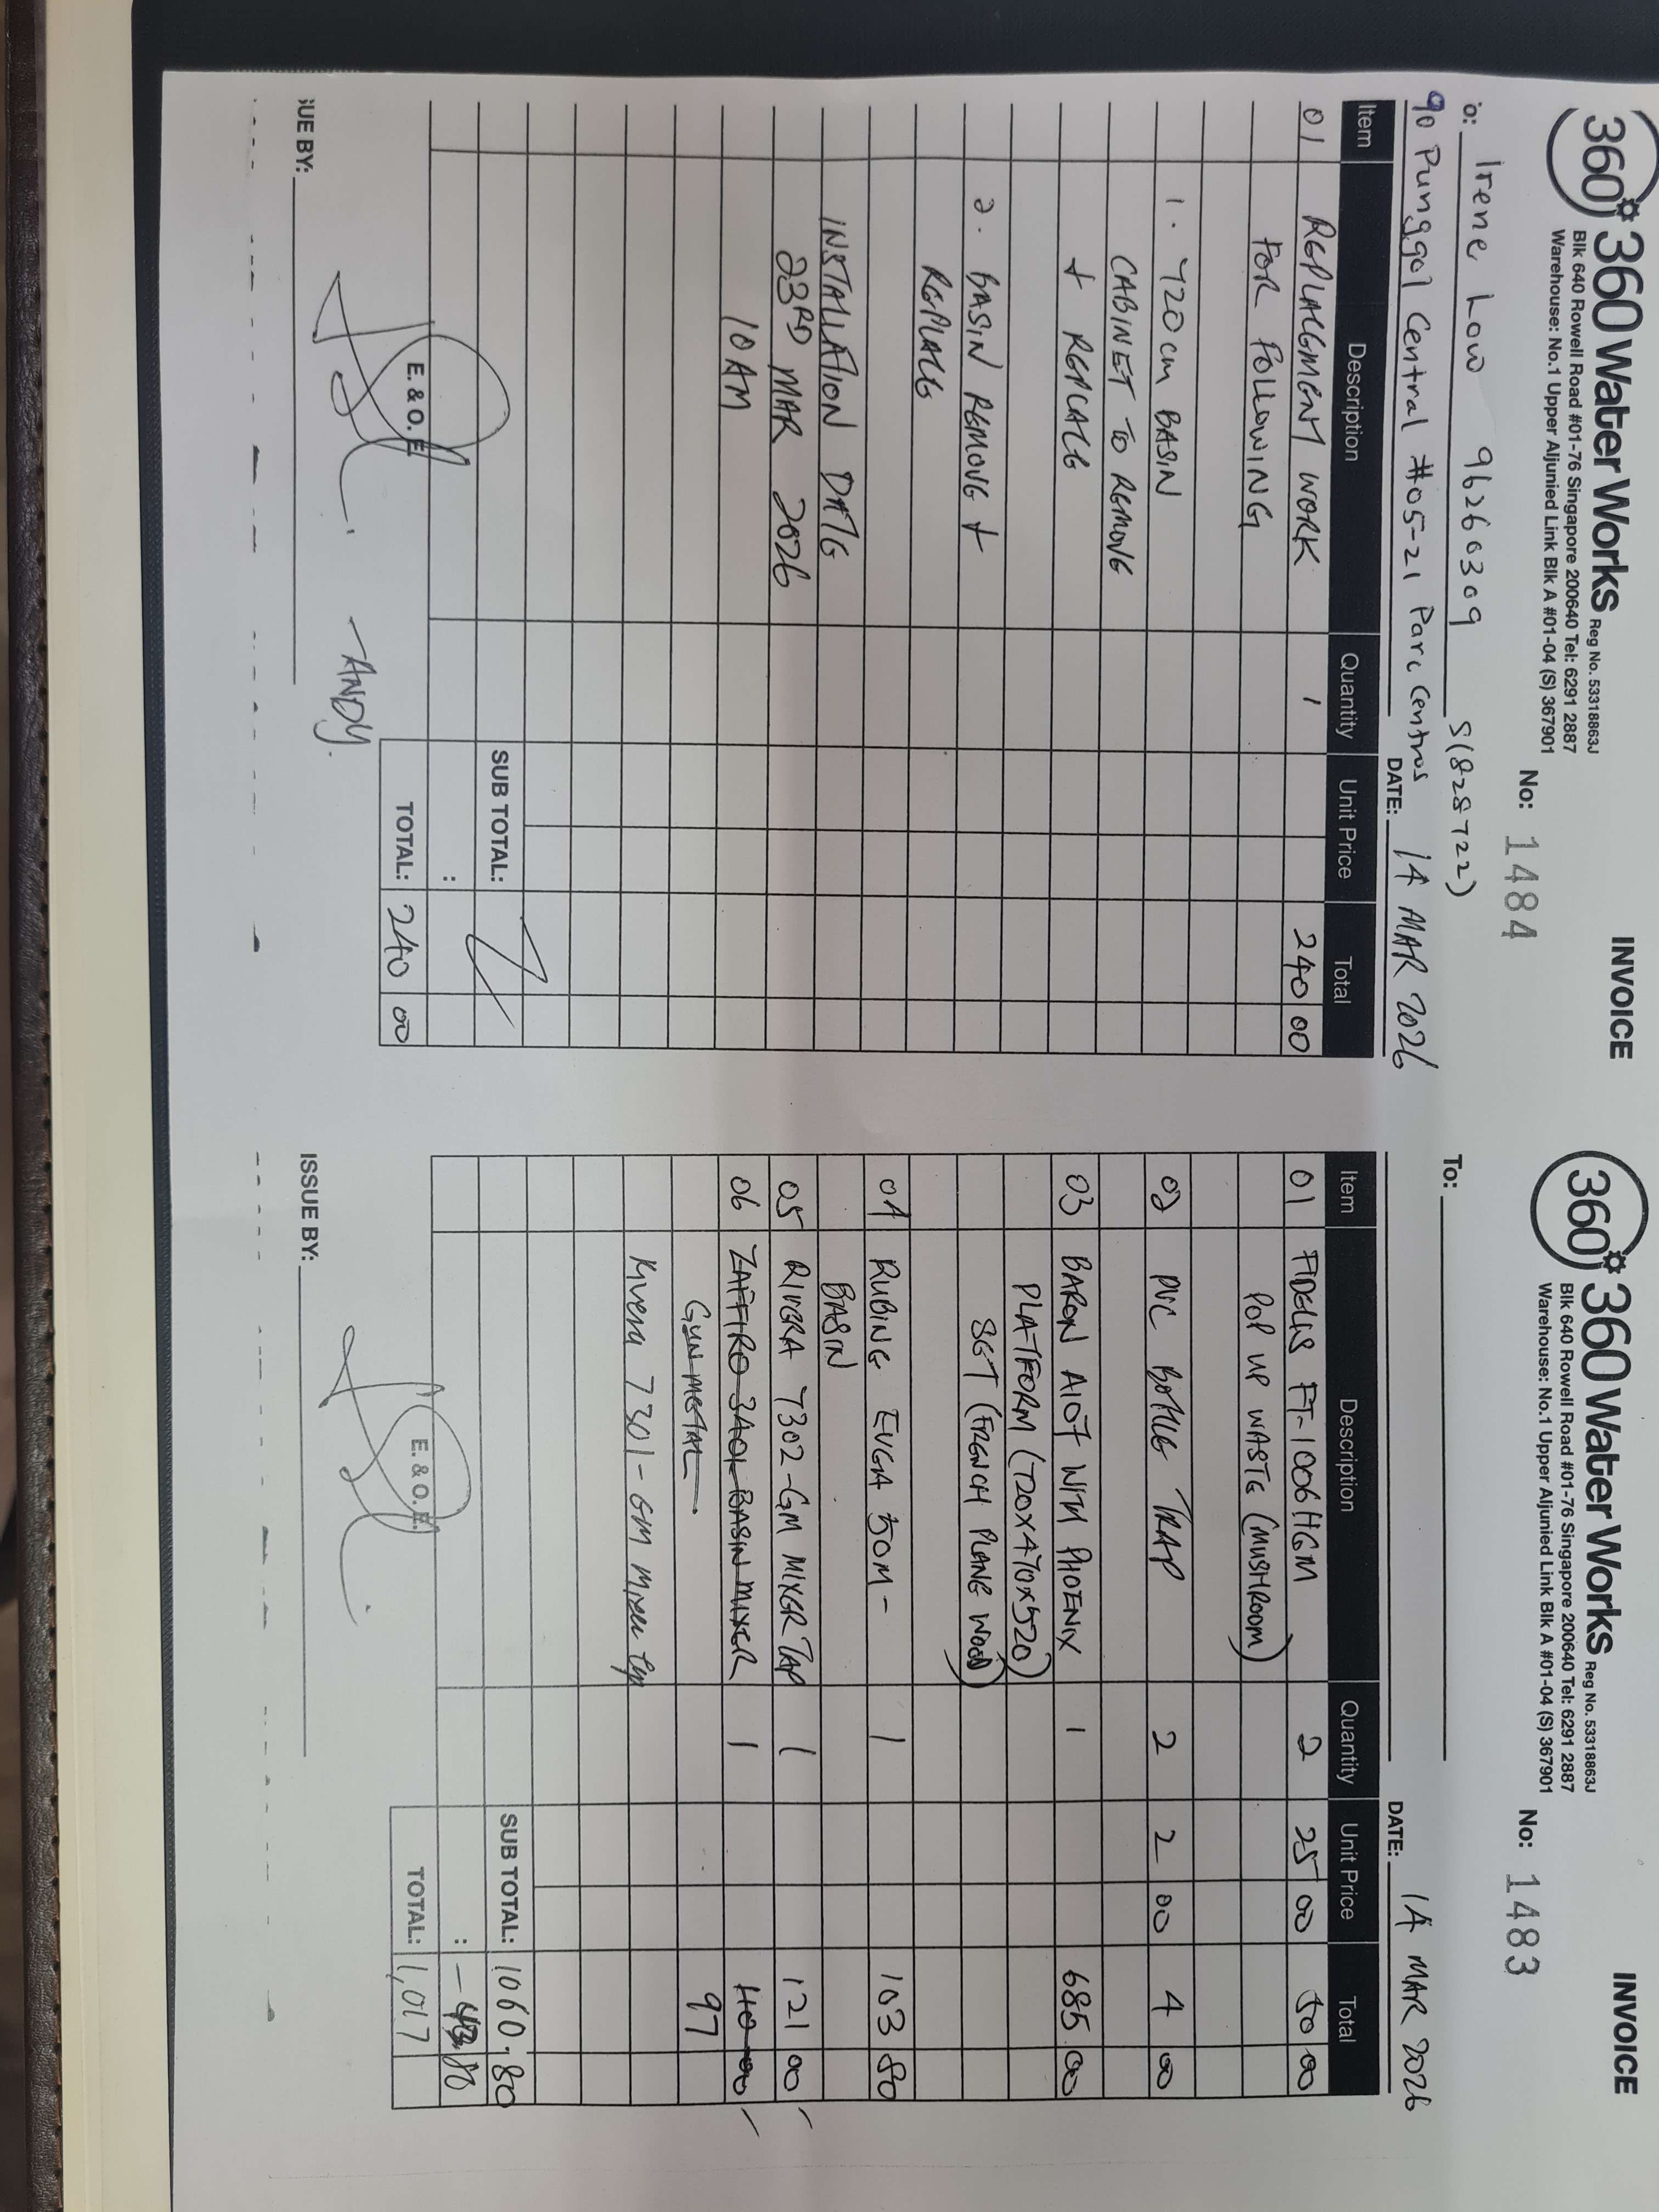 360
360 Water Works Reg No. 53318863J
Blk 640 Rowell Road #01-76 Singapore 200640 Tel: 6291 2887
Warehouse: No.1 Upper Aljunied Link Blk A #01-04 (S) 367901
INVOICE
No: 1484
o: Irene Low 96260309 S(828722)
90 Punggol Central #05-21 Parc Centros DATE: 14 MAR 2026
Item Description Quantity Unit Price Total
01 REPLACEMENT WORK 1 240 00
FOR FOLLOWING
1. 720cm BASIN
CABINET TO REMOVE
+ REPLACE
2. BASIN REMOVE +
REPLACE
INSTALLATION DATE
23RD MAR 2026
10 AM
SUB TOTAL:
:
TOTAL: 240 00
E. & O. E.
ANDY.
UE BY:
360
360 Water Works Reg No. 53318863J
Blk 640 Rowell Road #01-76 Singapore 200640 Tel: 6291 2887
Warehouse: No.1 Upper Aljunied Link Blk A #01-04 (S) 367901
INVOICE
No: 1483
To:
DATE: 14 MAR 2026
Item Description Quantity Unit Price Total
01 FIDELIS FT-1006HGM 2 25 00 50 00
POP UP WASTE (MUSHROOM)
02 PVC BOTTLE TRAP 2 2 00 4 00
03 BARON A107 WITH PHOENIX 1 685 00
PLATFORM (720x470x520)
SET (FRENCH PLANE WOOD)
04 RUBINE EVEA 50M- 1 103 80
BASIN
05 RIVERA 7302-GM MIXER TAP 1 121 00
06 ZAFFIRO 3401-BASIN MIXER 1 110 00
GUN METAL 97
Rivera 7301-GM Mixer tap
SUB TOTAL: 1060.80
: -43.80
TOTAL: 1,017
E. & O. E.
ISSUE BY: